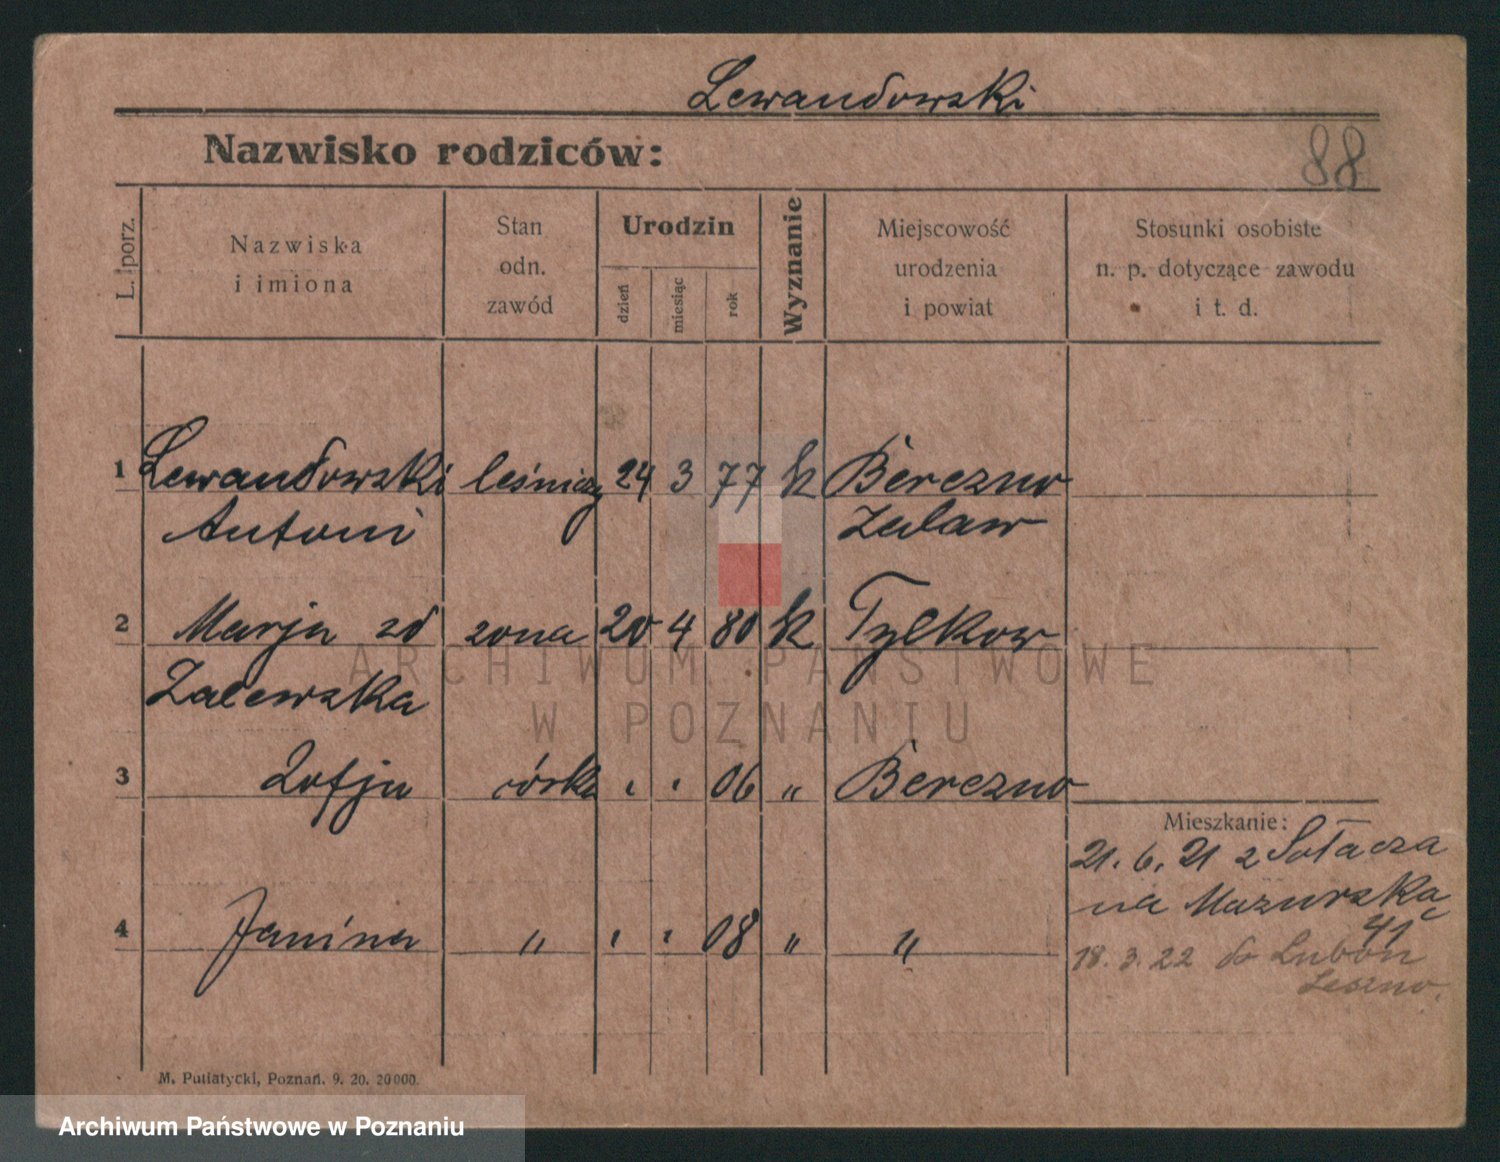 Lewandowski
Nazwisko rodziców:
88
L. porz.
Nazwiska
i imiona
Stan
odn.
zawód
Urodzin
dzień
miesiąc
rok
Wyznanie
Miejscowość
urodzenia
i powiat
Stosunki osobiste
n. p. dotyczące zawodu
i t. d.
1 Lewandowski leśniczy 24 3 77 k Berezno
Antoni Zasław
2 Marja zd żona 20 4 80 k Tylkow
Zalewska
3 Zofja córka " " 06 " Berezno
4 Janina " " " 08 " "
Mieszkanie:
21. 6. 21 z Sołacza
na Mazurska
41
18. 3. 22 do Luboń
Leszno.
M. Putiatycki, Poznań. 9. 20. 20000.
ARCHIWUM PAŃSTWOWE
W POZNANIU
Archiwum Państwowe w Poznaniu